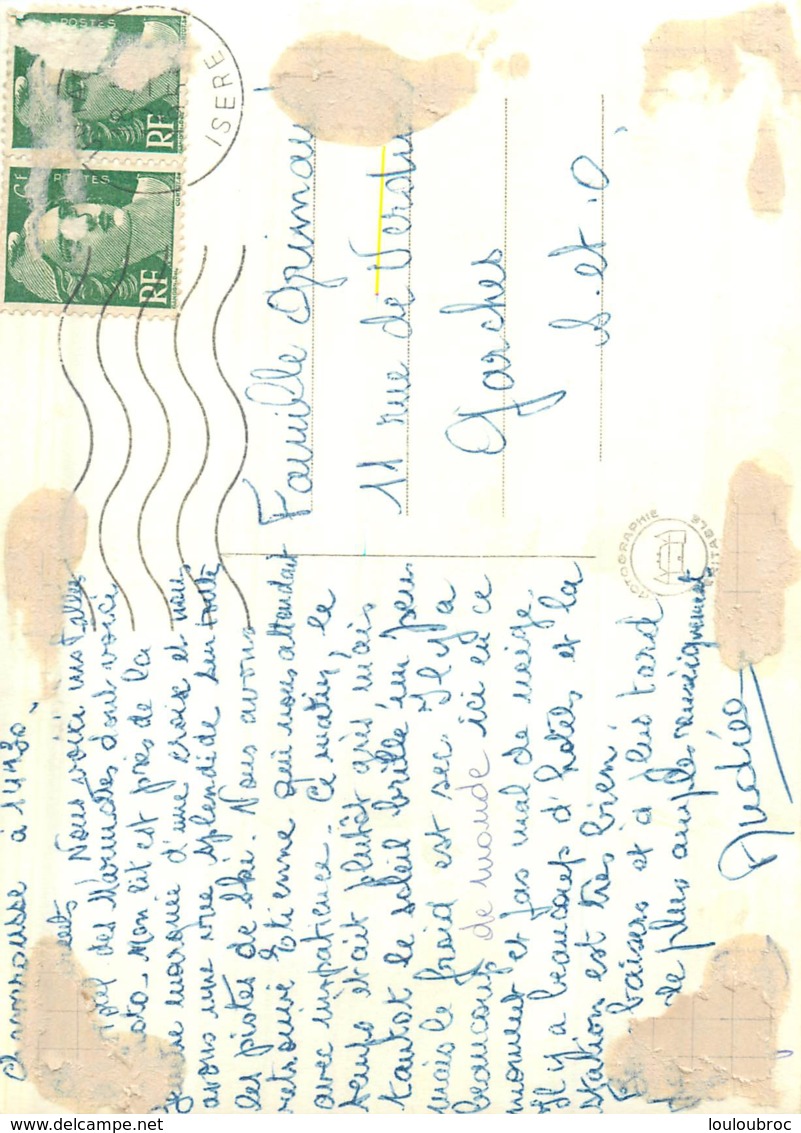 Chamrousse à 14h30.
Nous voici installés
des Marmottes dont voici
Mon lit est près de la
marquée d'une croix et nous
avons une vue splendide sur toutes
les pistes de ski. Nous avons
retrouvé Etienne qui nous attendait
avec impatience. Ce matin, le
temps était plutôt gris mais
tantot le soleil brille un peu
mais le froid est sec. Il y a
beaucoup de monde ici en ce
moment et pas mal de neige.
Il y a beaucoup d'hôtels et la
station est très bien.
baisers et à plus tard
de plus amples renseignements
Famille
11 rue de Verdun
Garches
S. et O.
POSTES
RF
POSTES
RF
ISERE
louloubroc